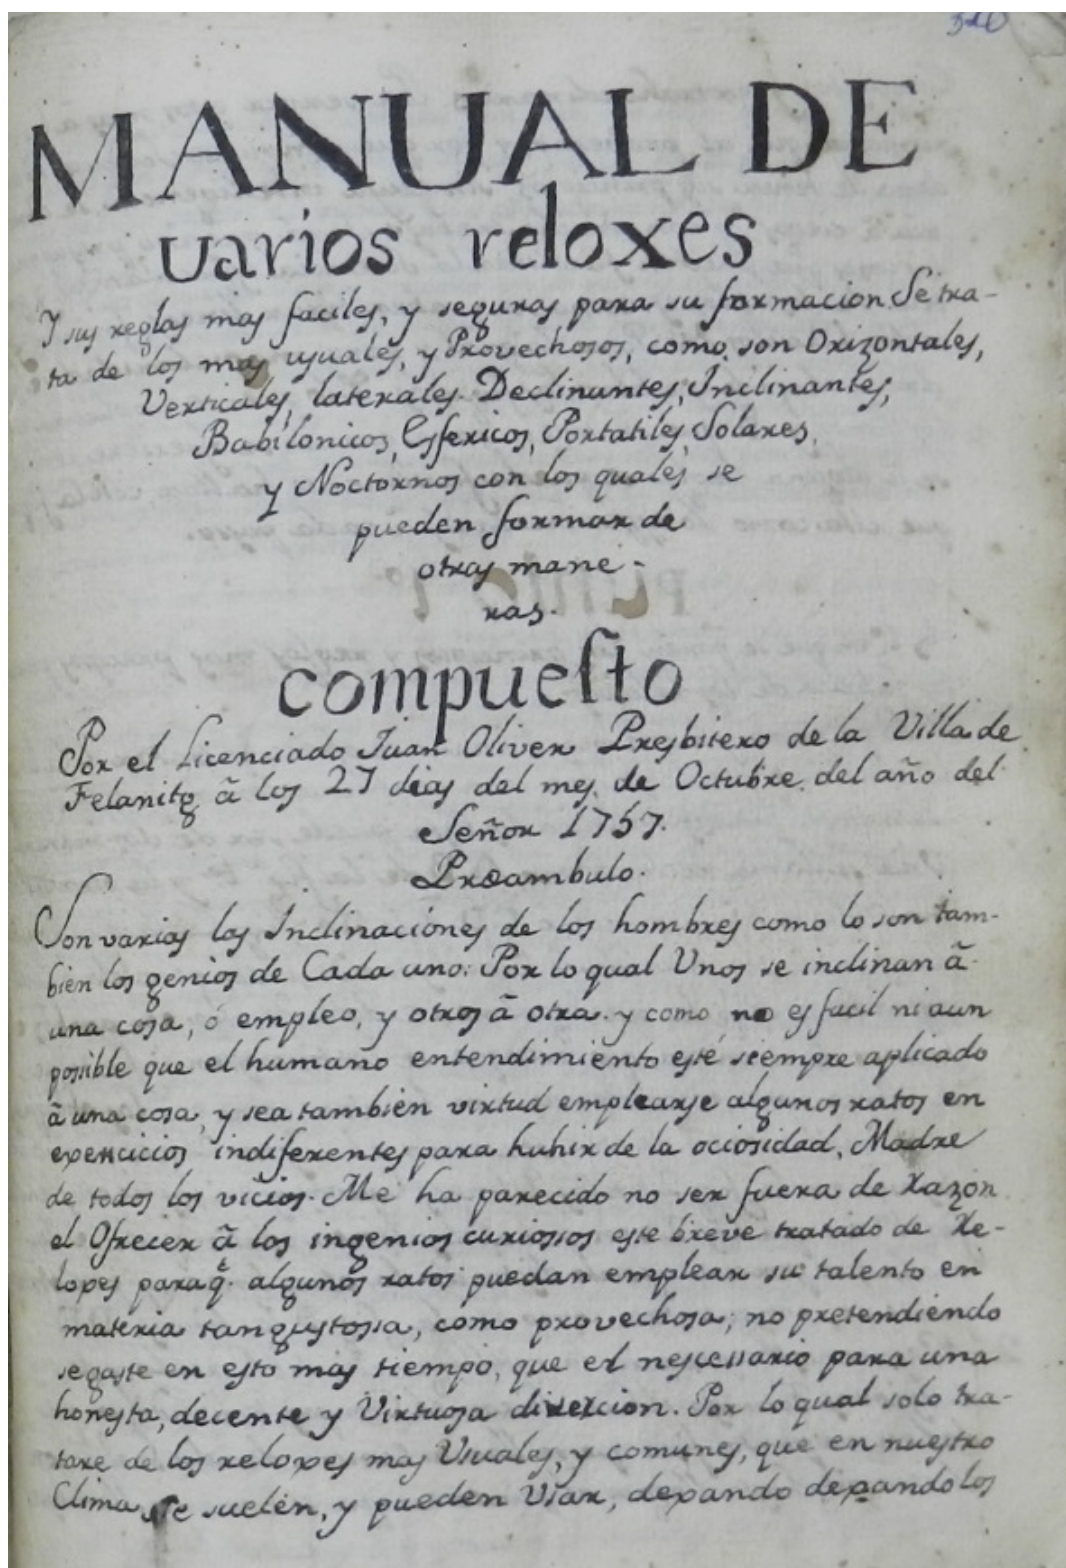 MANUAL DE
varios reloxes
Y sus reglas mas faciles, y seguras para su formacion. Se tra-
ta de los mas usuales, y Provechosos, como son Orizontales,
Verticales, laterales. Declinantes, Inclinantes,
Babilonicos, Esfericos, Portatiles, Solares,
y Noctornos con los quales se
pueden formar de
otras mane-
ras.
compuesto
Por el Licenciado Juan Oliver Presbitero de la Villa de
Felanitg à los 27 dias del mes de Octubre del año del
Señor 1757.
Preambulo.
Son varias las Inclinaciónes de los hombres como lo son tam-
bien los genios de Cada uno: Por lo qual Unos se inclinan à
una cosa, ó empleo, y otros à otra. y como no es facil ni aun
possible que el humano entendimiento esté siempre aplicado
à una cosa, y sea tambien virtud emplearse algunos ratos en
exercicios indiferentes para huhir de la ociosidad, Madre
de todos los vicios. Me ha parecido no ser fuera de razon
el Ofrecer à los ingenios curiossos este breve tratado de Re-
loxes paraq.e algunos ratos puedan emplear su talento en
materia tan gustossa, como provechosa; no pretendiendo
se gaste en esto mas tiempo, que el nescessario para una
honesta, decente y Virtuosa direxcion. Por lo qual solo tra-
tare de los reloxes mas Usuales, y comunes, que en nuestro
Clima se suelen, y pueden Usar, dexando dexandolos